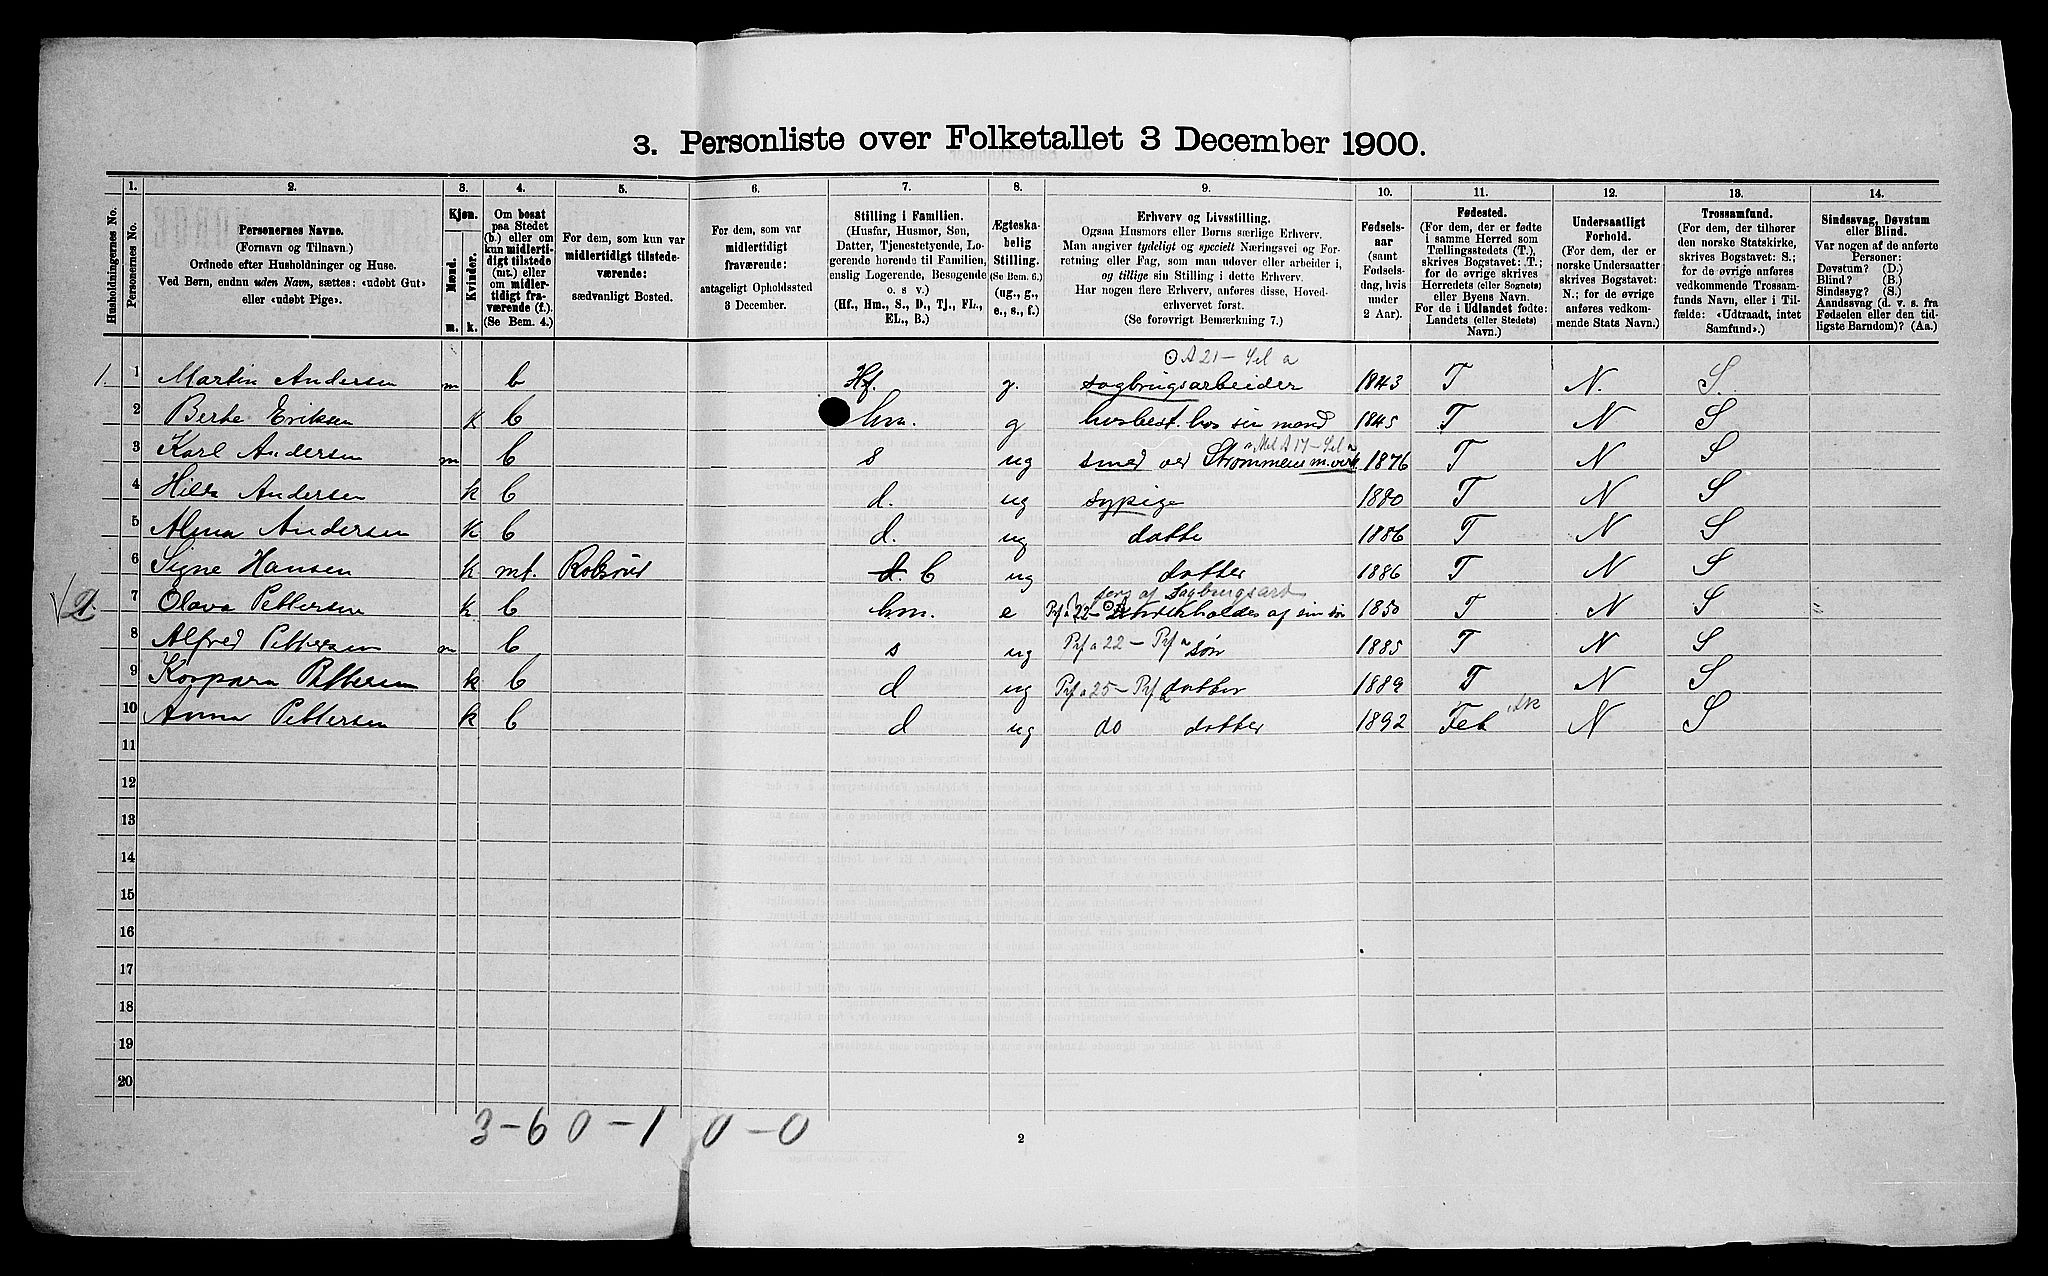 3. Personliste over Folketallet 3 December 1900.
Husholdningernes No.
1. Personernes No.
2. Personernes Navne. (Fornavn og Tilnavn.) Ordnede efter Husholdninger og Huse. Ved Børn, endnu uden Navn, sættes: «udøbt Gut» eller «udøbt Pige».
3. Kjøn. Mænd. m. Kvinder. k.
4. Om bosat paa Stedet (b.) eller om kun midlertidigt tilstede (mt.) eller om midlertidigt fraværende (f.). (Se Bem. 4.)
5. For dem, som kun var midlertidigt tilstedeværende: sædvanligt Bosted.
6. For dem, som var midlertidigt fraværende: antageligt Opholdssted 3 December.
7. Stilling i Familien. (Husfar, Husmor, Søn, Datter, Tjenestetyende, Logerende hørende til Familien, enslig Logerende, Besøgende o. s v.) (Hf., Hm., S., D., Tj., FL., EL., B.)
8. Ægteskabelig Stilling. (Se Bem. 6.) (ug., g., e., s., f.)
9. Erhverv og Livsstilling. Ogsaa Husmors eller Børns særlige Erhverv. Man angiver tydeligt og specielt Næringsvei og Forretning eller Fag, som man udøver eller arbeider i, og tillige sin Stilling i dette Erhverv. Har nogen flere Erhverv, anføres disse, Hovederhvervet først. (Se forøvrigt Bemærkning 7.)
10. Fødselsaar (samt Fødselsdag, hvis under 2 Aar).
11. Fødested. (For dem, der er fødte i samme Herred som Tællingsstedets (T.), skrives Bogstavet: T.; for de øvrige skrives Herredets (eller Sognets) eller Byens Navn. For de i Udlandet fødte: Landets (eller Stedets) Navn.)
12. Undersaatligt Forhold. (For dem, der er norske Undersaatter skrives Bogstavet: N.; for de øvrige anføres vedkommende Stats Navn.)
13. Trossamfund. (For dem, der tilhører den norske Statskirke, skrives Bogstavet: S.; for de øvrige anføres vedkommende Trossamfunds Navn, eller i Tilfælde: «Udtraadt, intet Samfund».)
14. Sindssvag, Døvstum eller Blind. Var nogen af de anførte Personer: Døvstum? (D.) Blind? (B.) Sindssyg? (S.) Aandssvag (d. v. s. fra Fødselen eller den tidligste Barndom)? (Aa.)
A 21 - Sel a
1. 1 Martin Andersen m b Hf. g. sagbrugsarbeider 1843 T N. S.
2 Berte Eriksen k b hm. g husbest. hos sin mand 1845 T N S
3 Karl Andersen m b s ug smed ved Strømmens m. verk 1876 T N S
4 Hilda Andersen k b d. ug sypige 1880 T N S
5 Alma Andersen k b d. ug datte 1886 T N S
6 Signe Hansen k mt. Robsrud d. b ug datter 1886 T N S
2. 7 Olava Pettersen k b hm. e af sin søn 1850 T N S
8 Alfred Pettersen m b s ug Prf a 22 - Prf a søn 1885 T N S
9 Pettersen k b d ug Prf a 25 - Prf datter 1889 T N S
10 Anna Pettersen k b d ug do datter 1892 Fet N S
11
12
13
14
15
16
17
18
19
20
3-6 0-1 0-0
2